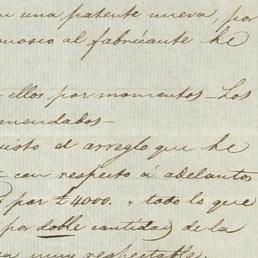 una patente nueva, por
al fabricante he
ellos por momentos - Los
mendados -
usto el arreglo que he
con respecto á adelantos
por £4000. , todo lo que
por doble cantidad de la
a muy respetable.